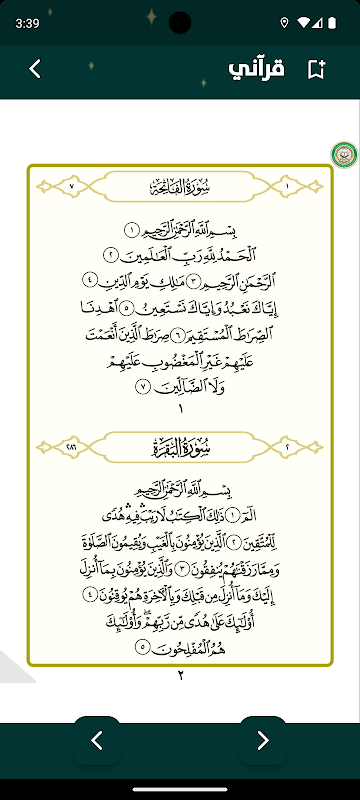 3:39
قرآني
١ سُورَةُ الفَاتِحَةِ ٧
بِسْمِ ٱللَّهِ ٱلرَّحْمَٰنِ ٱلرَّحِيمِ ١
ٱلْحَمْدُ لِلَّهِ رَبِّ ٱلْعَٰلَمِينَ ٢
ٱلرَّحْمَٰنِ ٱلرَّحِيمِ ٣ مَٰلِكِ يَوْمِ ٱلدِّينِ ٤
إِيَّاكَ نَعْبُدُ وَإِيَّاكَ نَسْتَعِينُ ٥ ٱهْدِنَا
ٱلصِّرَٰطَ ٱلْمُسْتَقِيمَ ٦ صِرَٰطَ ٱلَّذِينَ أَنْعَمْتَ
عَلَيْهِمْ غَيْرِ ٱلْمَغْضُوبِ عَلَيْهِمْ
وَلَا ٱلضَّآلِّينَ ٧
١
٢ سُورَةُ البَقَرَةِ ٢٨٦
بِسْمِ ٱللَّهِ ٱلرَّحْمَٰنِ ٱلرَّحِيمِ
الٓمٓ ١ ذَٰلِكَ ٱلْكِتَٰبُ لَا رَيْبَۛ فِيهِۛ هُدًى
لِّلْمُتَّقِينَ ٢ ٱلَّذِينَ يُؤْمِنُونَ بِٱلْغَيْبِ وَيُقِيمُونَ ٱلصَّلَوٰةَ
وَمِمَّا رَزَقْنَٰهُمْ يُنفِقُونَ ٣ وَٱلَّذِينَ يُؤْمِنُونَ بِمَآ أُنزِلَ
إِلَيْكَ وَمَآ أُنزِلَ مِن قَبْلِكَ وَبِٱلْءَاخِرَةِ هُمْ يُوقِنُونَ ٤
أُو۟لَٰٓئِكَ عَلَىٰ هُدًى مِّن رَّبِّهِمْۖ وَأُو۟لَٰٓئِكَ
هُمُ ٱلْمُفْلِحُونَ ٥
٢